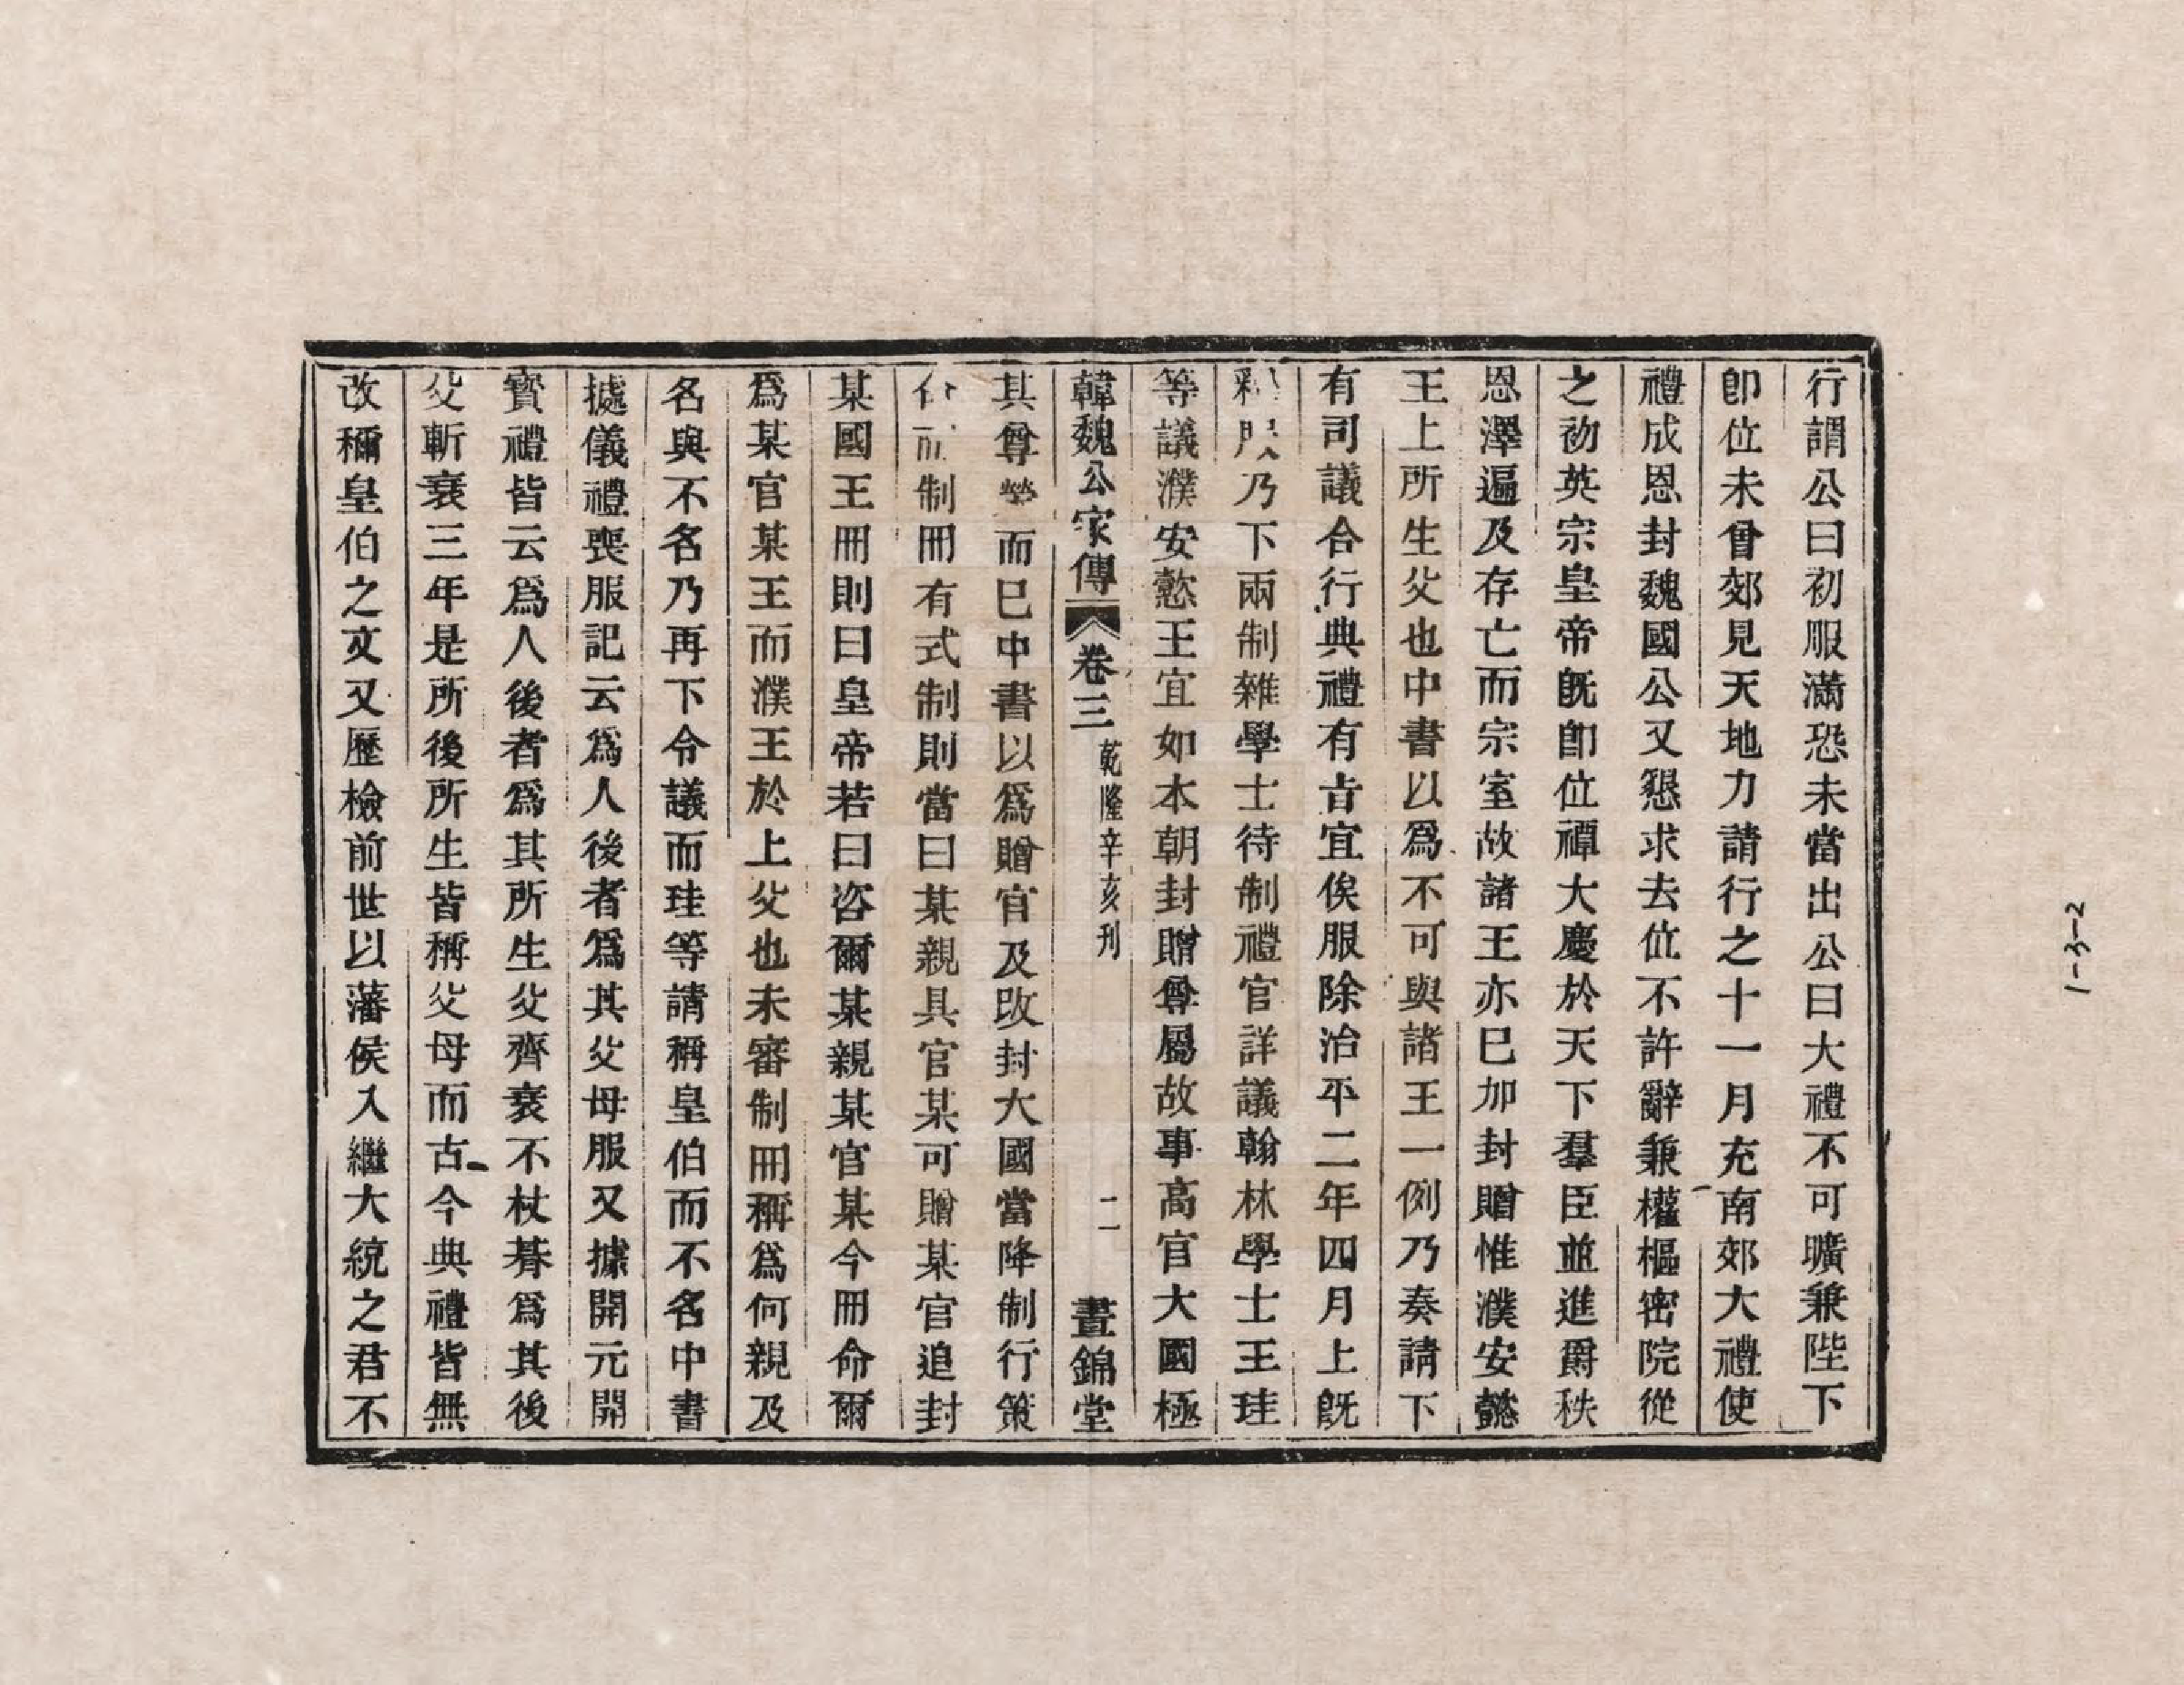 行謂公曰初服滿恐未當出公曰大禮不可曠兼陛下
卽位未曾郊見天地力請行之十一月充南郊大禮使
禮成恩封魏國公又懇求去位不許辭兼權樞密院從
之初英宗皇帝旣卽位禫大慶於天下羣臣並進爵秩
恩澤遍及存亡而宗室故諸王亦巳加封贈惟濮安懿
王上所生父也中書以爲不可與諸王一例乃奏請下
有司議合行典禮有㫖宜俟服除治平二年四月上旣
釋服乃下兩制雜學士待制禮官詳議翰林學士王珪
等議濮安懿王宜如本朝封贈尊屬故事高官大國極
韓魏公家傳 卷三 乾隆辛亥刊 二 晝錦堂
其尊榮而巳中書以爲贈官及改封大國當降制行策
命而制冊有式制則當曰某親具官某可贈某官追封
某國王冊則曰皇帝若曰咨爾某親某官某今冊命爾
爲某官某王而濮王於上父也未審制冊稱爲何親及
名與不名乃再下令議而珪等請稱皇伯而不名中書
據儀禮喪服記云爲人後者爲其父母服又據開元開
寳禮皆云爲人後者爲其所生父齊衰不杖朞爲其後
父斬衰三年是所後所生皆稱父母而古今典禮皆無
改稱皇伯之文又歷檢前世以藩侯入繼大統之君不
1-3-2